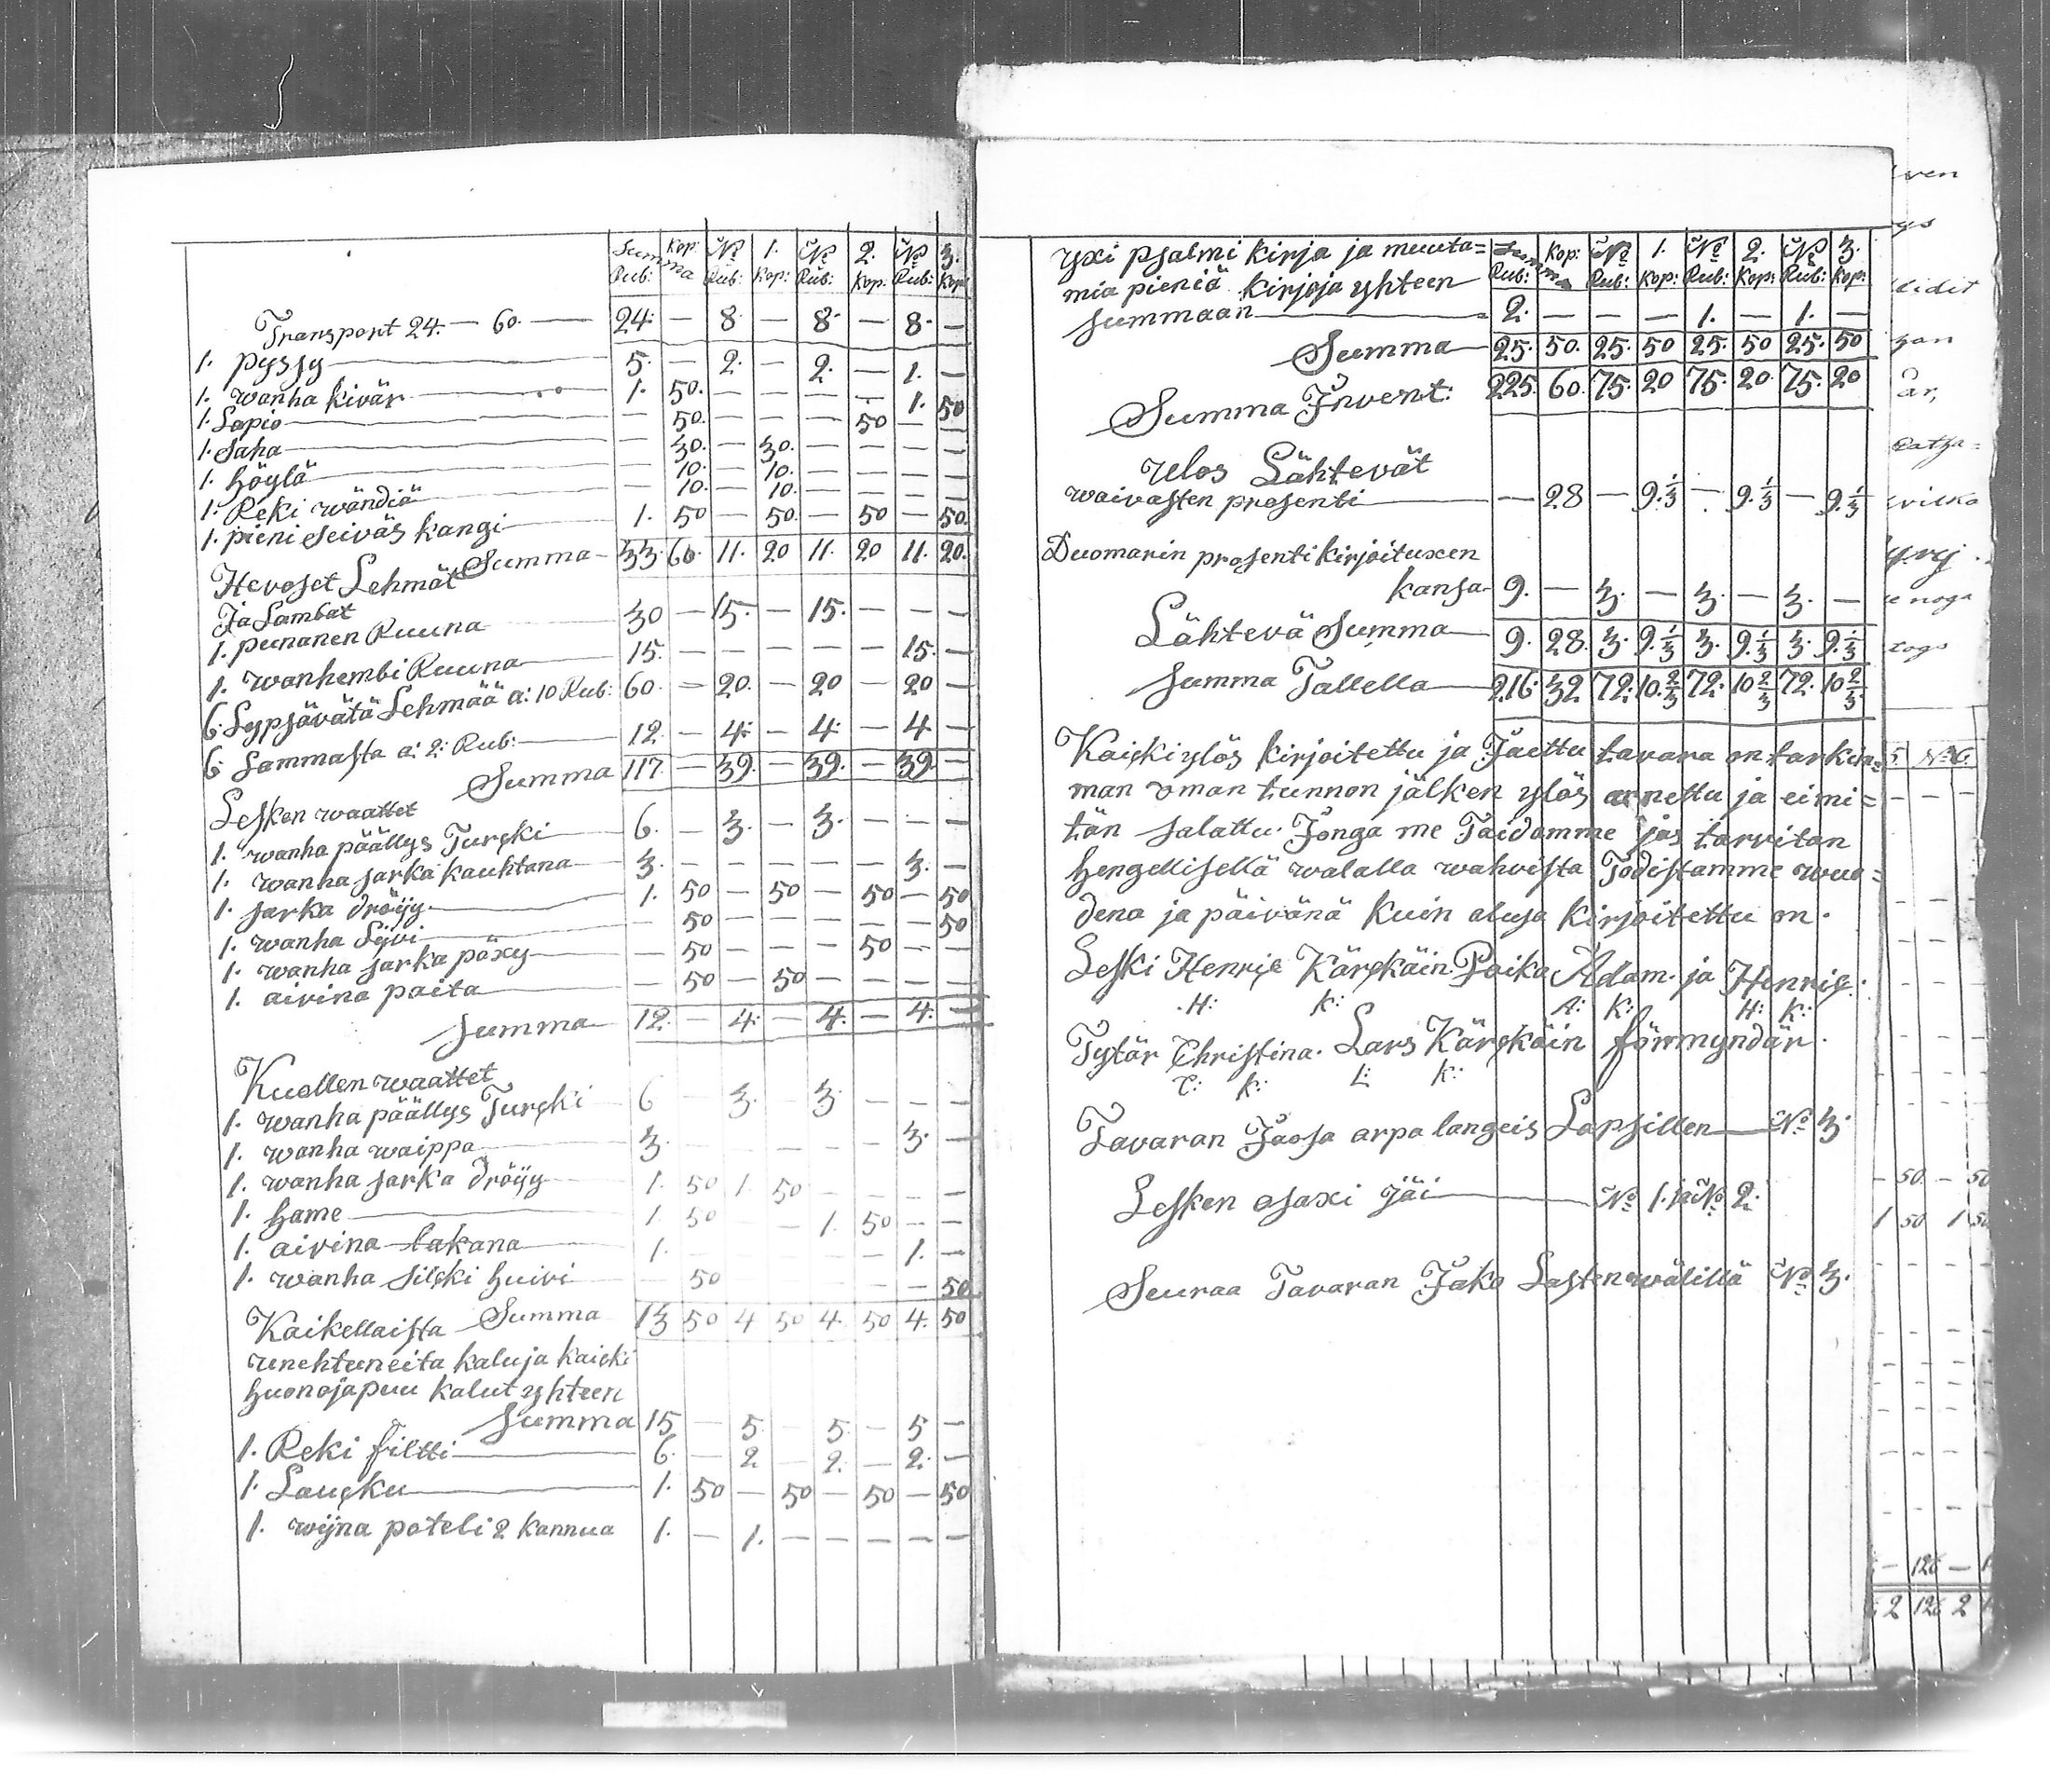 Summa Kop: No 1. No 2. No 3.
Rub: Rub: Kop: Rub: Kop: Rub: Kop:
Transport 24. — 60. — 24. — 8. — 8. — 8. —
1. pyssy — 5. — 2. — 2. — 1. —
1. wanha kivär — 1. 50. — — — — 1. 50
1. Lapio — — 50. — — — 50 — —
1. Saha — — 30. — 30. — — — —
1. höylä — — 10. — 10. — — — —
1. Reki wändiä — — 10. — 10. — — — —
1. pieni seiväs kangi — 1. 50 — 50. — 50 — 50.
Summa — 33 60. 11. 20 11. 20 11. 20.
Hevoset Lehmät
Ja Lambat
1. punanen Ruuna 30 — 15. — 15. — — —
1. wanhembi Ruuna — 15. — — — — — 15. —
6. Lypsävätä Lehmää a: 10 Rub: 60. — 20. — 20 — 20 —
6. Lammasta a: 2: Rub: — 12 — 4. — 4. — 4 —
Summa 117. — 39. — 39. — 39 —
Lesken waattet
1. wanha päällys Turcki — 6. — 3. — 3. — — —
1. wanha sarka kauhtana — 3. — — — — — 3. —
1. sarka dröijy — 1. 50 — 50 — 50 — 50
1. wanha Lijvi — — 50 — — — — — 50
1. wanha sarka pöxy — — 50 — — — 50 — —
1. aivina paita — — 50 — 50 — — — —
Summa — 12. — 4. — 4. — 4. —
Kuollen waattet
1. wanha päällys Turcki — 6 — 3. — 3. — — —
1. wanha waippa — 3. — — — — — 3. —
1. wanha sarka dröijy — 1. 50 1. 50 — — — —
1. hame — 1. 50 — — 1. 50 — —
1. aivina lakana — 1. — — — — — 1. —
1. wanha silcki huivi — — 50 — — — — — 50
Kaikellaista Summa — 13 50 4 50 4. 50 4. 50
unehtuneita kaluja kaicki
huonoja puu kalut yhteen
Summa 15 — 5 — 5 — 5 —
1. Reki filtti — 6. — 2 — 2. — 2. —
1. Laucku — 1. 50 — 50 — 50 — 50
1. wijna poteli 2 kannua 1. — 1. — — — — —
yxi psalmi kirja ja muuta= Summa Kop: No 1. No 2. No 3.
mia pieniä kirjoja yhteen Rub: Rub: Kop: Rub: Kop: Rub: Kop:
summaan — 2. — — — 1. — 1. —
Summa — 25. 50. 25. 50 25. 50 25. 50
Summa Invent: 225. 60. 75. 20 75. 20. 75. 20
Ulos Lähtevät
waivasten prosenti — — 28 — 9. 1/3 — 9. 1/3 — 9. 1/3
Duomarin prosenti kirjoituxen
kansa — 9. — 3. — 3. — 3. —
Lähtevä Summa — 9. 28. 3. 9. 1/3 3. 9. 1/3 3. 9. 1/3
Summa Tallella — 216. 32 72. 10. 2/3 72. 10 2/3 72. 10 2/3
Kaicki ylös kirjoitettu ja Jaettu tavara on tarkim=
man oman tunnon jälken ylös annettu ja ei mi=
tän salattu. Jonga me Taidamme jos tarvitan
hengellisellä walalla wahvista Todistamme wuo=
dena ja päivänä kuin alusa kirjoitettu on.
Leski Henric Kärckäin Poika Adam. ja Henric:
H: K: A: K: H: K:
Tytär Christina. Lars Kärckäin förmyndär.
C: K: L: K:
Tavaran Jaosa arpa langeis Lapsillen — No 3.
Lesken osaxi jäi — No 1. ja No 2.
Seuraa Tavaran Jako Lasten wälillä No 3.